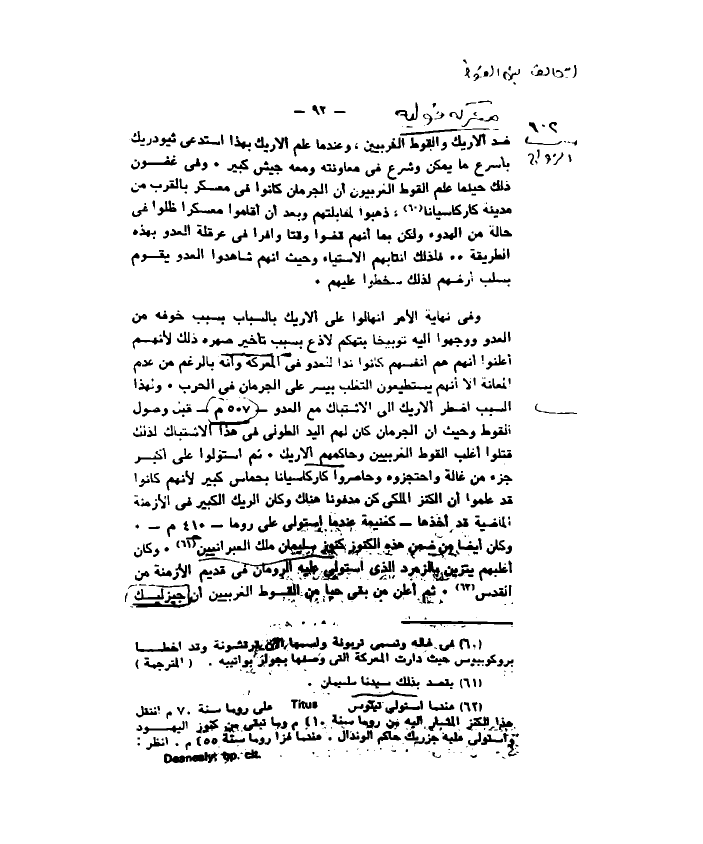 التحالف بين القوط
معركة فوليه
— ٩٢ —
٩٠٢
الزواج
ضد آلاريك والقوط الغربيين ، وعندما علم آلاريك بهذا استدعى ثيودريك
بأسرع ما يمكن وشرع فى معاونته ومعه جيش كبير ٠ وفى غضون
ذلك حينما علم القوط الغربيون أن الجرمان كانوا فى معسكر بالقرب من
مدينة كاركاسيانا(٦٠) ، ذهبوا لمقابلتهم وبعد أن أقاموا معسكرا ظلوا فى
حالة من الهدوء ولكن بما أنهم قضوا وقتا وافرا فى عرقلة العدو بهذه
الطريقة ٠٠ فلذلك انتابهم الاستياء وحيث انهم شاهدوا العدو يقوم
بسلب أرضهم لذلك سخطوا عليهم ٠
وفى نهاية الأمر انهالوا على آلاريك بالسباب بسبب خوفه من
العدو ووجهوا اليه توبيخا بتهكم لاذع بسبب تأخير صهره ذلك لأنهم
أعلنوا أنهم هم أنفسهم كانوا ندا للعدو فى المعركة وأنه بالرغم من عدم
المعانة الا أنهم يستطيعون التغلب بيسر على الجرمان فى الحرب ٠ ولهذا
السبب اضطر آلاريك الى الاشتباك مع العدو — ٥٠٧ م — قبل وصول
القوط وحيث ان الجرمان كان لهم اليد الطولى فى هذا الاشتباك لذلك
قتلوا أغلب القوط الغربيين وحاكمهم آلاريك ٠ ثم استولوا على أكبر
جزء من غالة واحتجزوه وحاصروا كاركاسيانا بحماس كبير لأنهم كانوا
قد علموا أن الكنز الملكى كن مدفونا هناك وكان الريك الكبير فى الأزمنة
الماضية قد أخذها — كغنيمة عندما إستولى على روما — ٤١٠ م — ٠
وكان أيضا من ضمن هذه الكنوز كنوز سليمان ملك العبرانيين(٦١) ٠ وكان
أغلبهم يتزين بالزمرد الذى استولى عليه الرومان فى قديم الأزمنة من
القدس(٦٢) ٠ ثم أعلن من بقى حيا من القوط الغربيين أن جيزليك
(٦٠) فى غالة وتسمى تريونة واسمها الآن قرقشونة وقد اخطا
بروكوبيوس حيث دارت المعركة التى وصفها بجوار بواتييه . ( المترجمة )
(٦١) يقصد بذلك سيدنا سليمان .
(٦٢) عندما استولى تيتوس Titus على روما سنة ٧٠ م انتقل
هذا الكنز المشار اليه من روما سنة ٤١٠ م وما تبقى من كنوز اليهود
واستولى عليه جزريك حاكم الوندال . عندما غزا روما سنة ٤٥٥ م . انظر :
Deanesly; op. cit.